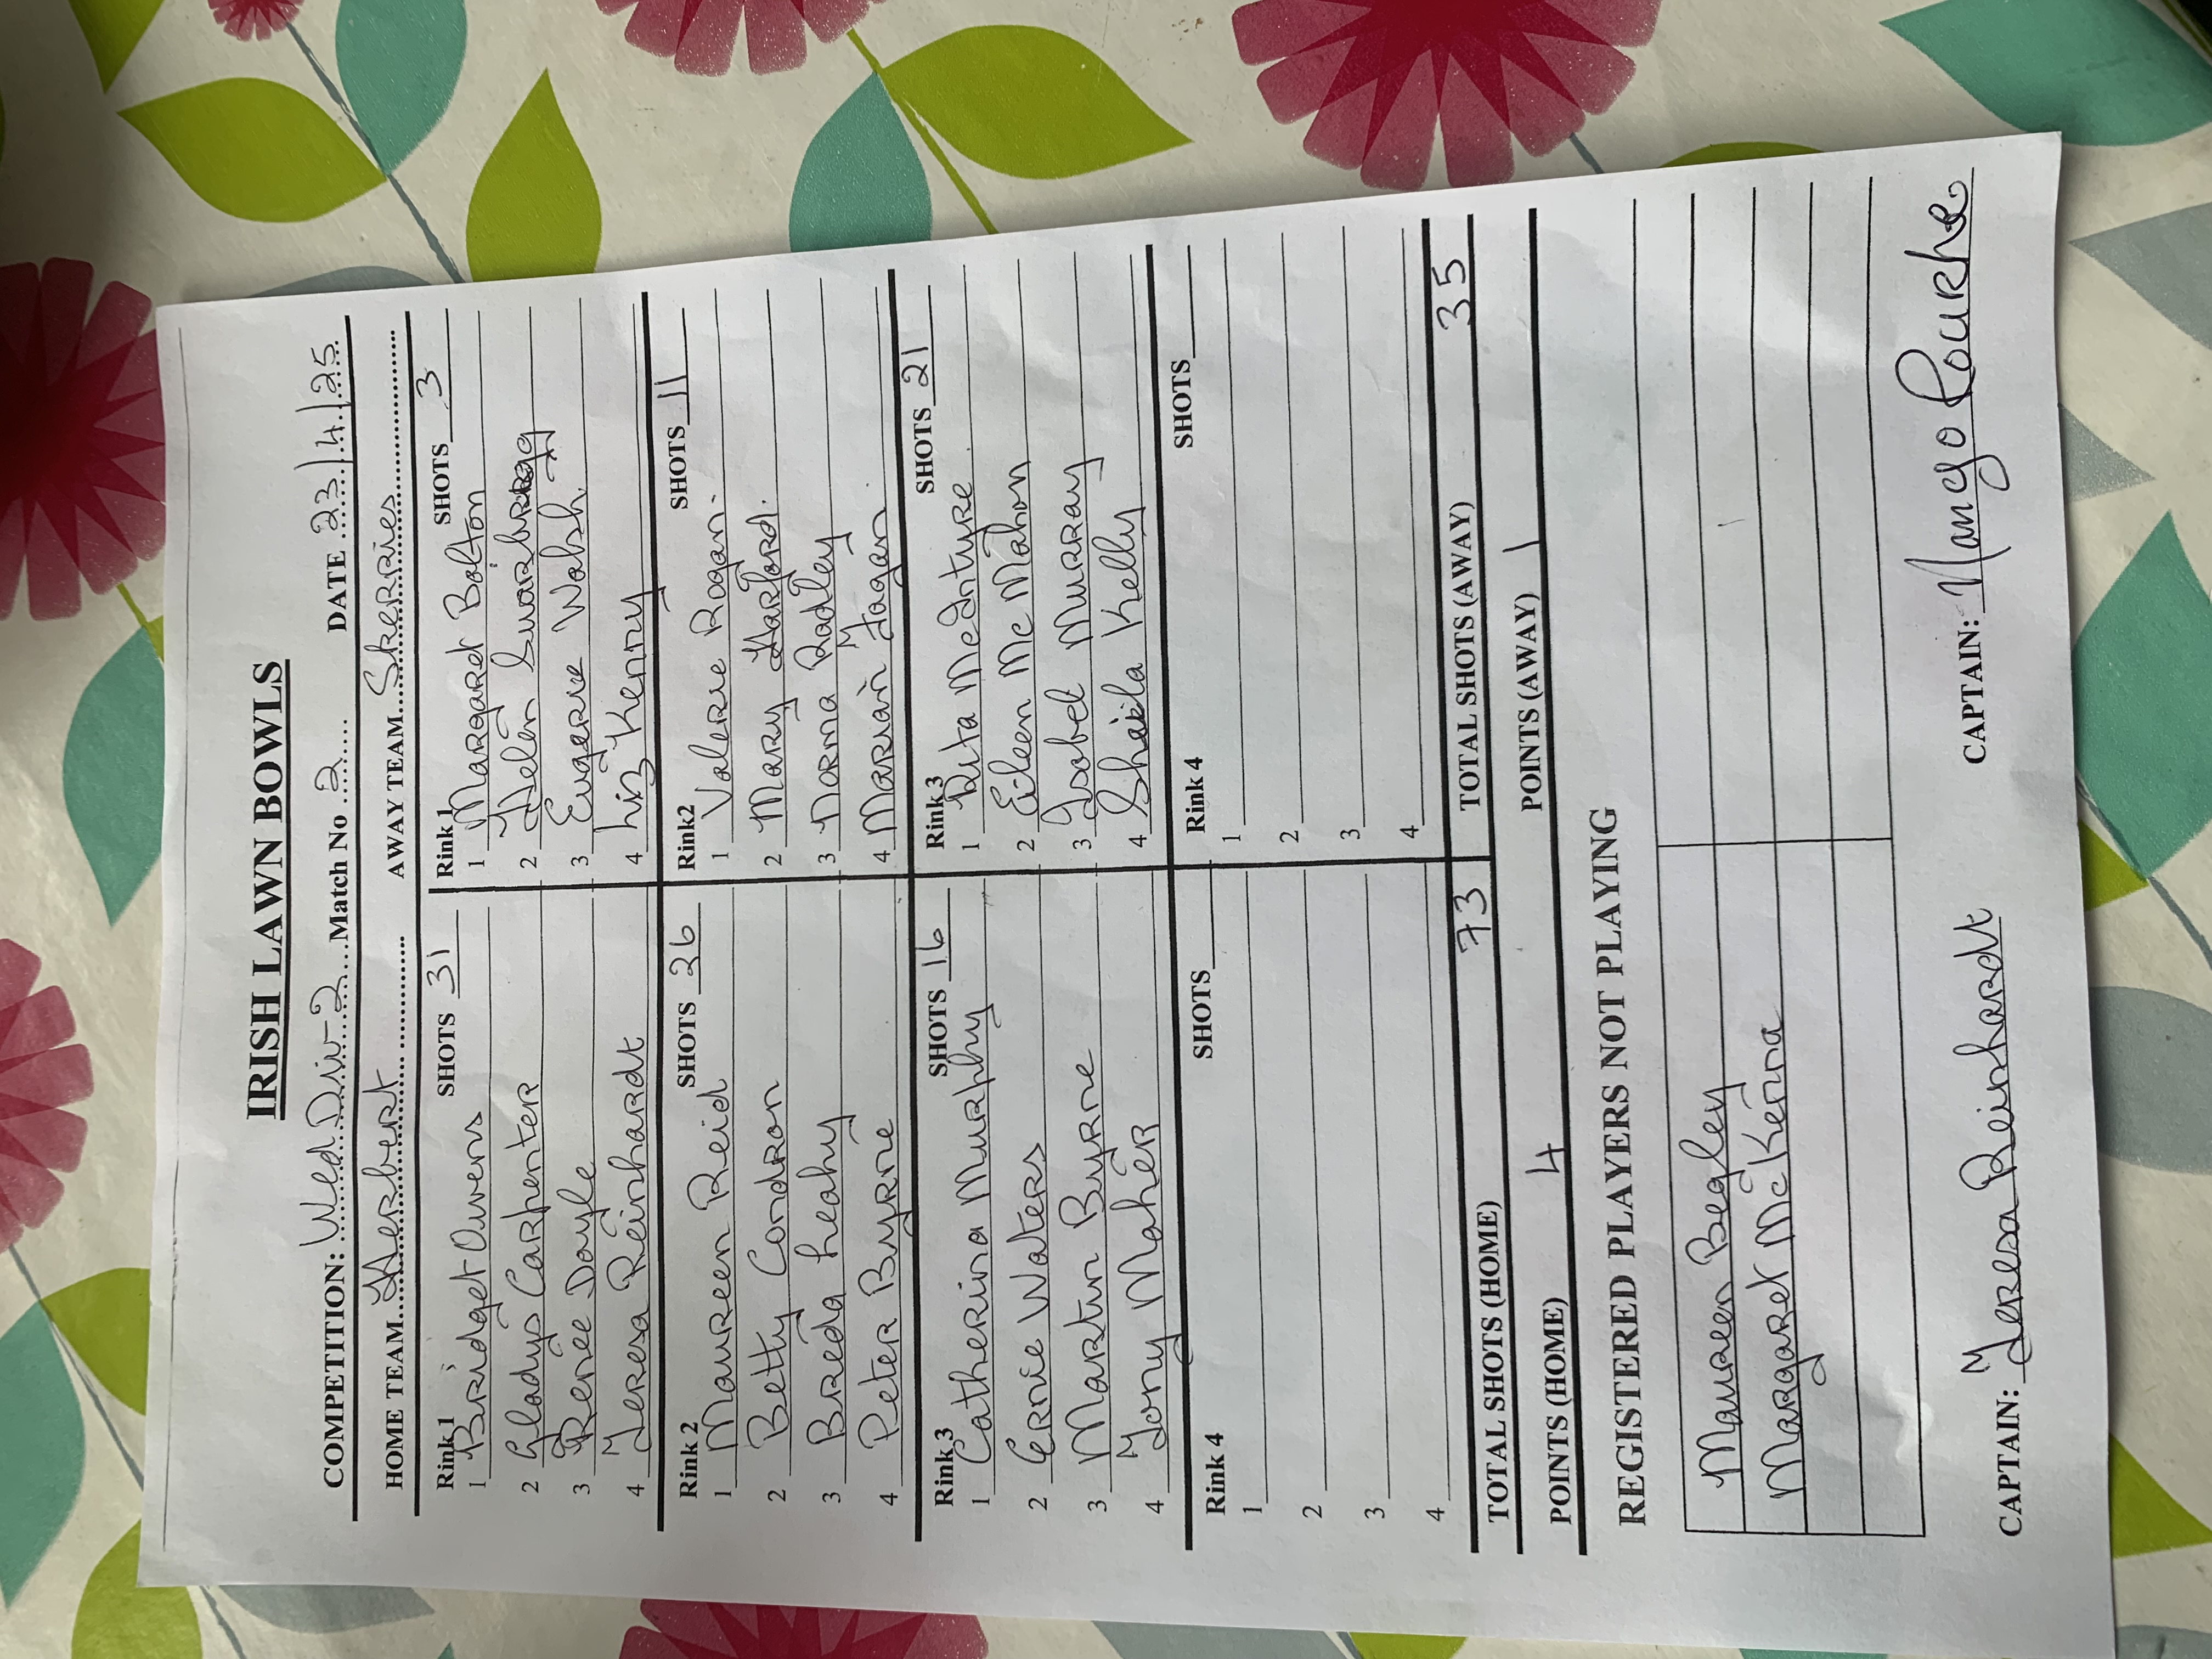 IRISH LAWN BOWLS
COMPETITION: Wed Div-2 Match No 2 DATE 23/4/25
HOME TEAM Herbert AWAY TEAM Skerries
Rink 1 SHOTS 31
1 Bridget Owens
2 Gladys Carpenter
3 Renee Doyle
4 Teresa Reinhardt
Rink 1 SHOTS 3
1 Margaret Bolton
2 Helen Swarbrigg
3 Eugene Walsh
4 Liz Kenny
Rink 2 SHOTS 26
1 Maureen Reid
2 Betty Condron
3 Breda Leahy
4 Peter Byrne
Rink2 SHOTS 11
1 Valerie Rogan.
2 Mary Harford.
3 Norma Radley
4 Marian Fagan
Rink 3 SHOTS 16
1 Catherina Murphy
2 Ernie Waters
3 Martin Byrne
4 Tony Maher
Rink 3 SHOTS 21
1 Rita McIntyre
2 Eileen Mc Mahon
3 Isobel Murray
4 Sheila Kelly
Rink 4 SHOTS
1
2
3
4
Rink 4 SHOTS
1
2
3
4
TOTAL SHOTS (HOME) 73 TOTAL SHOTS (AWAY) 35
POINTS (HOME) 4 POINTS (AWAY) 1
REGISTERED PLAYERS NOT PLAYING
Maureen Begley
Margaret McKenna
CAPTAIN: Teresa Reinhardt CAPTAIN: Rourke